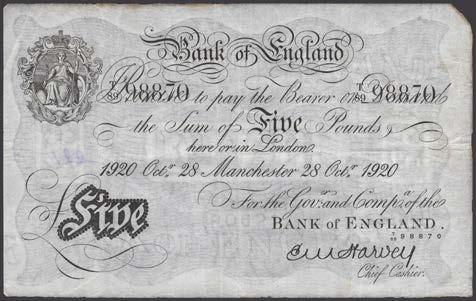 Bank of England
T/89 98870 T/89 98870
Promise to pay the Bearer on Demand
the Sum of Five Pounds
here or in London.
1920 Octr 28 Manchester 28 Octr 1920
For the Govr. and Compa. of the
BANK OF ENGLAND.
98870
Five
E M Harvey
Chief Cashier.